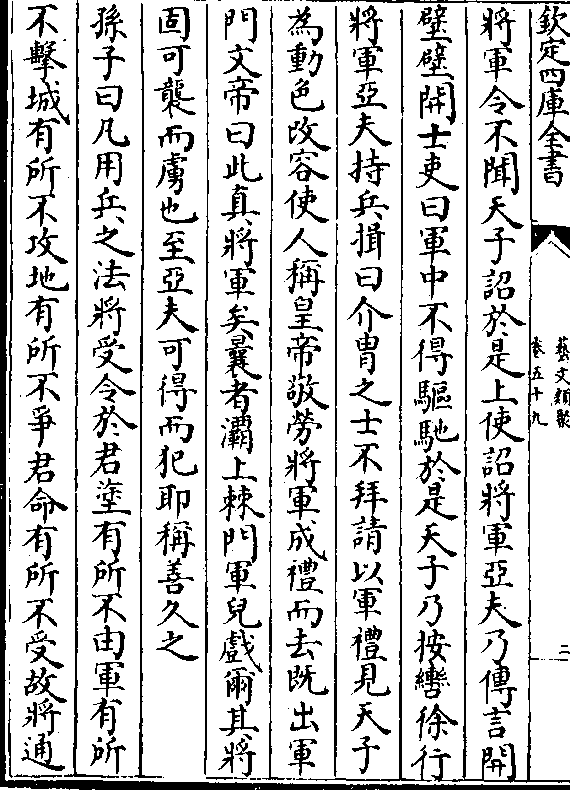 欽定四庫全書
藝文類聚
卷五十九
二
將軍令不聞天子詔於是上使詔將軍亞夫乃傳言開
壁壁開士吏曰軍中不得驅馳於是天子乃按轡徐行
將軍亞夫持兵揖曰介胄之士不拜請以軍禮見天子
為動色改容使人稱皇帝敬勞將軍成禮而去既出軍
門文帝曰此真將軍矣曩者灞上棘門軍兒戲爾其將
固可襲而虜也至亞夫可得而犯耶稱善久之
孫子曰凡用兵之法將受令於君塗有所不由軍有所
不擊城有所不攻地有所不爭君命有所不受故將通